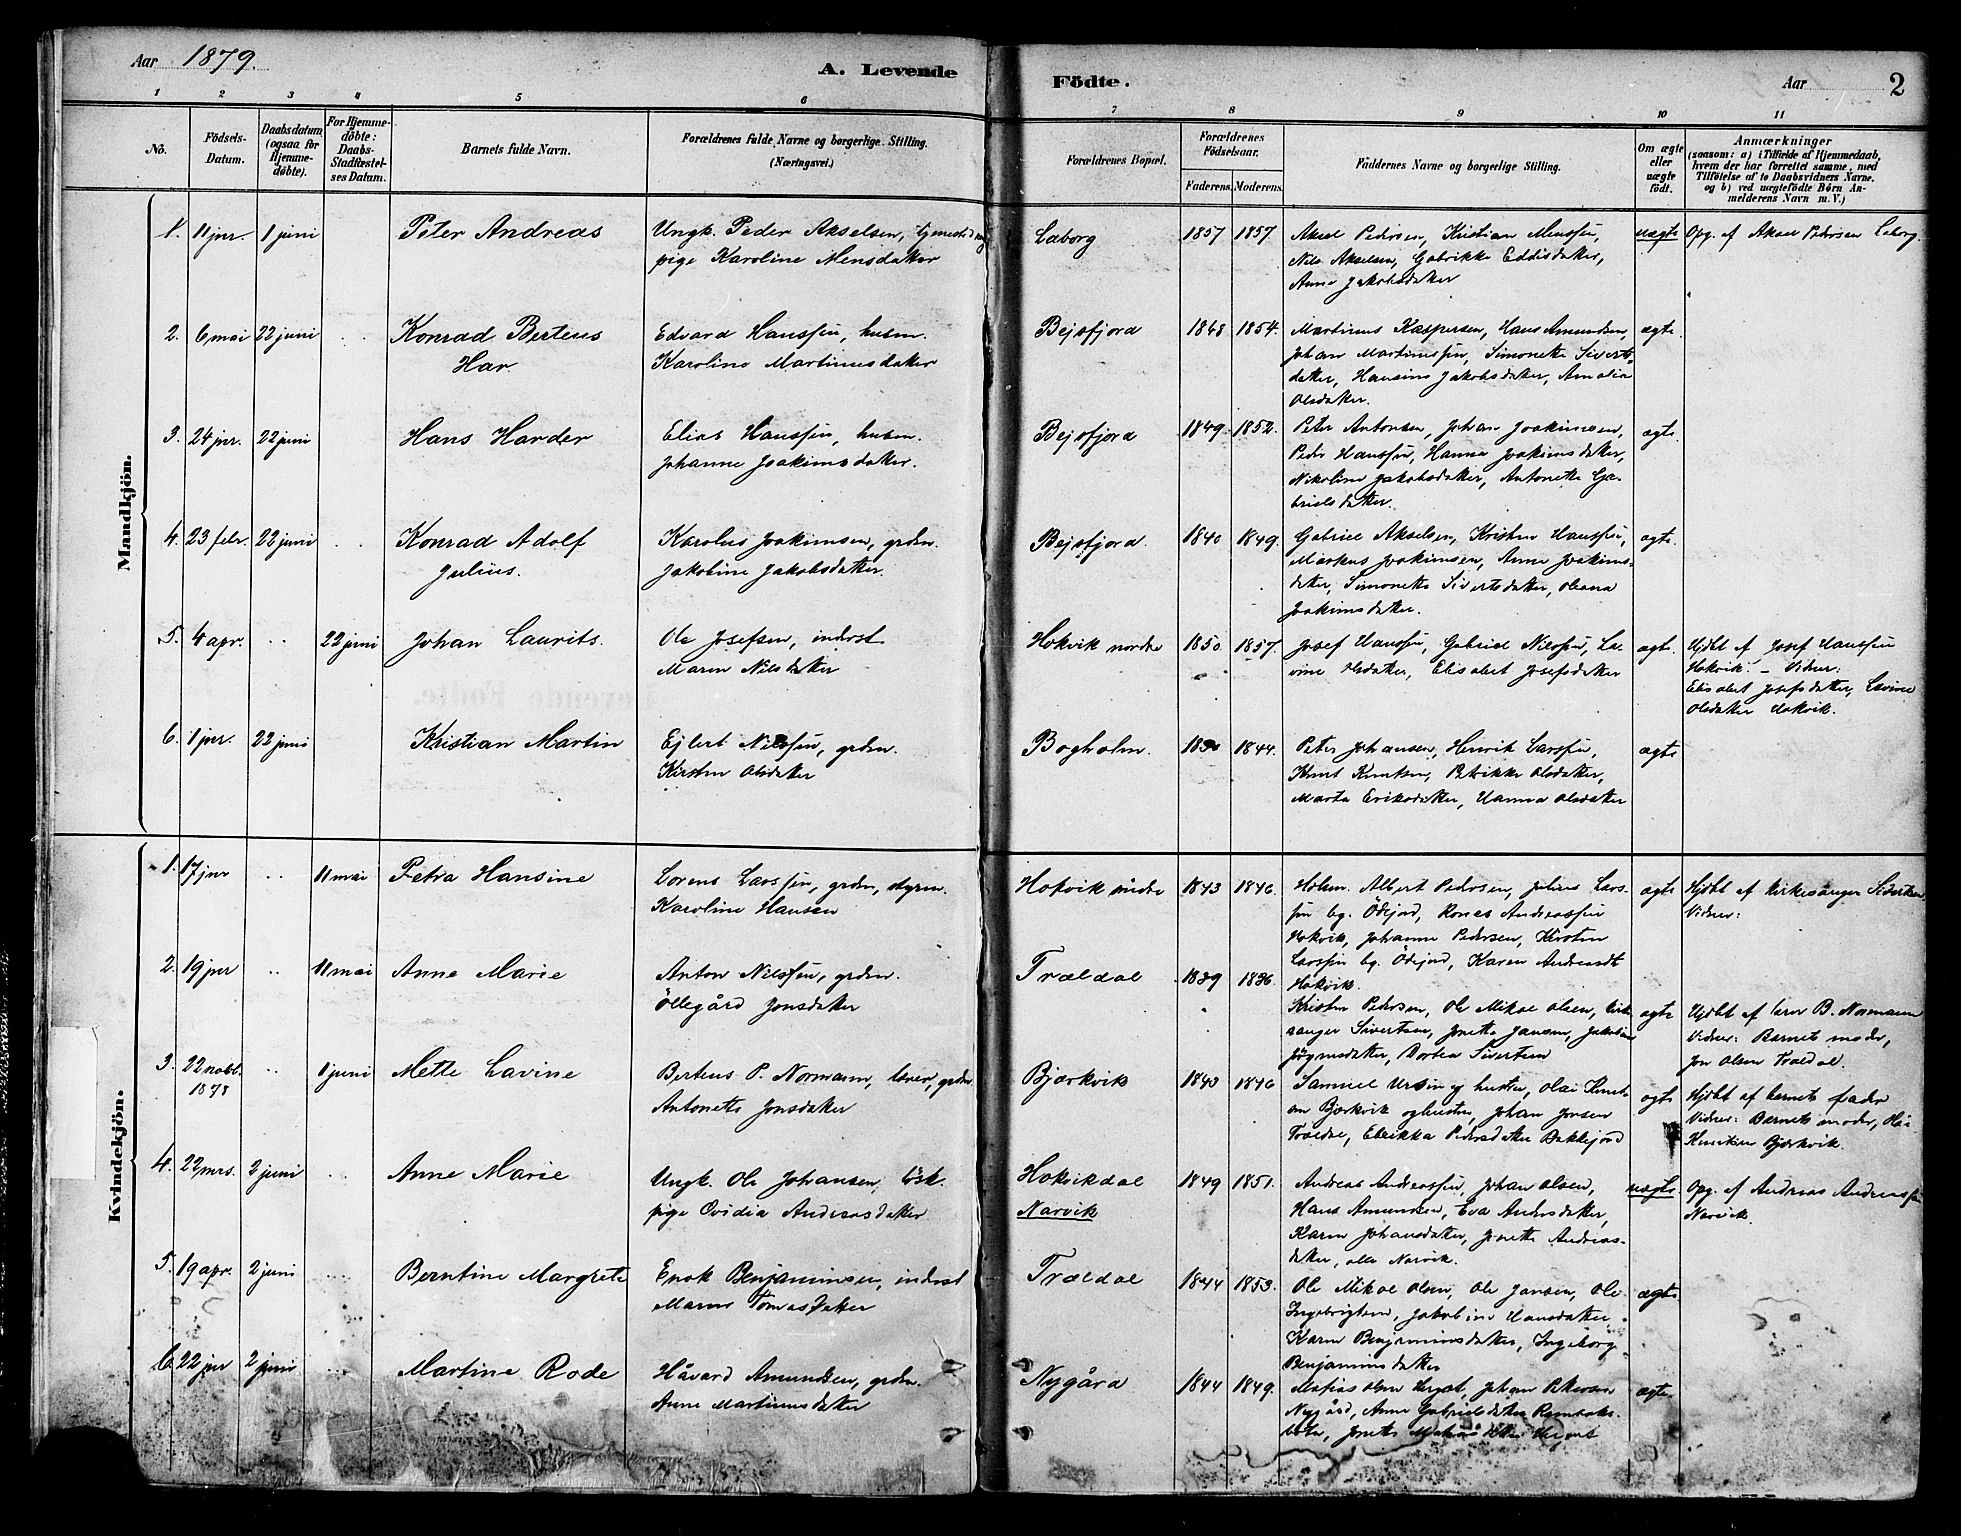 Aar 1879.
A. Levende
Födte.
Aar
2
1 2 3 4 5 6 7 8 9 10 11
No.
Födsels-
Datum.
Daabsdatum
(ogsaa for
Hjemme-
döbte).
For Hjemme-
döbte:
Daabs-
Stadfæstel-
ses Datum.
Barnets fulde Navn.
Forældrenes fulde Navne og borgerlige Stilling.
(Næringsvei.)
Forældrenes Bopæl.
Forældrenes
Födselsaar.
Faderens. Moderens.
Faddernes Navne og borgerlige Stilling.
Om ægte
eller
uægte
födt.
Anmærkninger
(saasom: a) i Tilfælde af Hjemmedaab,
hvem der har forrettet samme, med
Tilföielse af to Daabsvidners Navne.
og b) ved uægtefödte Börn An-
melderens Navn m. V.)
Mandkjön.
1. 11 jnr. 1 juni
Peter Andreas
Ungk. Peder Akselsen, tjenestd. og
pige Karoline Mensdatter
Laborg
1857 1857.
Aksel Pedersen, Kristian Menssen,
Nils Akselsen, Gabrikke Eddisdatter,
Anne Jakobsdatter
uægte
Opg. af Aksel Pedersen Laborg.
2. 6 mai 22 juni
Konrad Berteus
Har
Edvard Hanssen, husm.
Karoline Martinusdatter
Bejsfjord
1848 1854.
Martinus Kaspersen, Hans Amundsen,
Johan Martinussen, Simonette Siverts-
datter, Hansine Jakobsdatter, Amalia
Olsdatter.
ægte.
3. 24 jnr. 22 juni
Hans Harder
Elias Hanssen, husm.
Johanne Joakimsdatter.
Bejsfjord
1849 1852.
Peter Antonsen, Johan Joakimsen,
Peder Hanssen, Hanna Joakimsdatter,
Nikoline Jakobsdatter, Antonette Ga-
brielsdatter.
ægte.
4. 23 febr. 22 juni
Konrad Adolf
Julius.
Karolus Joakimsen, grdm.
Jakobine Jakobsdatter.
Bejsfjord.
1840 1849.
Gabriel Akselsen, Kristen Hanssen,
Markus Joakimsen, Anne Joakims-
datter, Simonette Sivertsdatter, Oleana
Joakimsdatter.
ægte.
5. 4 apr. 22 juni
Johan Laurits.
Ole Josefsen, inderst
Maren Nilsdatter
Hokvik nordre
1850 1857.
Josef Hanssen, Gabriel Nilssen, La-
vine Olsdatter, Elisabet Josefsdatter
ægte.
Hjdbt af Josef Hanssen
Hokvik. – Vidner:
Elisabet Josefsdatter, Lavine
Olsdatter Hokvik.
6. 1 jnr. 22 juni
Kristian Martin
Ejlert Nilssen, grdm.
Kirsten Olsdatter
Bogholm.
1844.
Peter Johansen, Henrik Larssen,
Knut Knutsen, Petrikke Olsdatter,
Marta Eriksdatter, Hanna Olsdatter
ægte
Kvindekjön.
1. 17 jnr 11 mai
Petra Hansine
Lorens Larssen, grdm, styrm.
Karoline Hansen
Hokvik indre
1843 1846.
Holm. Albert Pedersen, Julius Lars-
sen bg. Ödejord, Rones Andreassen
Hokvik, Johanne Pedersen, Kirsten
Larssen bg. Ödejord, Karen Andreasdt
Hokvik.
ægte
Hjdbt af kirkesanger Sivertsen
Vidner:
2. 19 jnr 11 mai
Anne Marie
Anton Nilssen, grdm.
Öllegård Jonsdatter
Trældal
1839 1836.
Kristen Pedersen, Ole Mikal Olsen, kirke-
sanger Sivertsen, Jonette Jansen, Jakobine
Jögensdatter, Dortea Sivertsen
ægte
Hjdbt af lærer B. Normann
Vidner: Barnets moder,
Jon Olsen Trældal.
3. 22 novbr. 1 juni
1878
Mette Lavine
Berteus P. Normann, lærer, grdm.
Antonette Jonsdatter
Bjerkvik
1843 1846
Samuel Ursin og hustru, Olai Knut-
sen Bjerkvik og hustru, Johan Jonsen
Trældal, Elerikka Pedersdatter Bakkejord
ægte
Hjdbt af barnets fader
Vidner: Barnets moder, Olai
Knutsen Bjerkvik.
4. 22 mrs. 2 juni
Anne Marie
Ungk. Ole Johansen, lösk.
pige Ovidia Andreasdatter.
Hokvikdal
Narvik
1849 1851.
Andreas Andreassen, Johan Olsen,
Hans Amundsen, Eva Andersdatter,
Karen Johansdatter, Jonette Andreas-
datter, alle Narvik.
uægte.
Opg. af Andreas Andreassen
Narvik.
5. 19 apr. 2 juni
Berntine Margrete
Enok Benjaminsen, inderst
Maren Tomasdatter
Trældal
1844 1853.
Ole Mikal Olsen, Ole Jansen, Ole
Ingebrigtsen, Jakobine Hansdatter,
Karen Benjaminsdatter, Ingeborg
Benjaminsdatter
ægte.
6. 22 jnr 2 juni
Martine Rode
Håvard Amundsen, grdm.
Anne Martinusdatter
Nygård
1844 1849.
Matias Olsen Herjot, Johan Petersen
Nygård, Anne Gabrielsdatter
Jonette Matiasdatter Herjot
ægte.